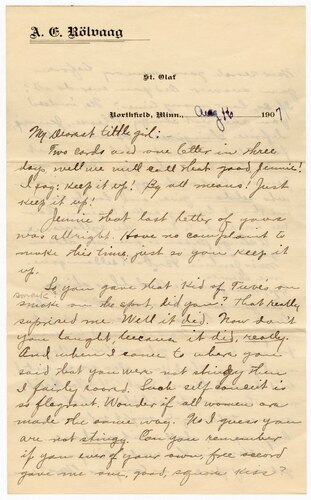 A. E. Rölvaag
St. Olaf
Northfield, Minn., Aug 16 1907
My Dearest little girl:
Two cards and one letter in three
days well we will call that good, Jennie!
I say: keep it up! By all means! Just
keep it up!
Jennie that last letter of yours
was allright. Have no complaint to
make this time, just so you keep it
up.
So you gave that kid of
smoke on the spot, did you? That really
suprised me. Well it did. Now don't
you laugh, because it did, really.
And when I came to where you
said that you were not stingy then
I fairly roared. Such self conceit is
so flagrant. Wonder if all women are
made the same way. No I guess you
are not stingy. Can you remember
if you ever of your own, free accord
gave me one, good, square kiss?